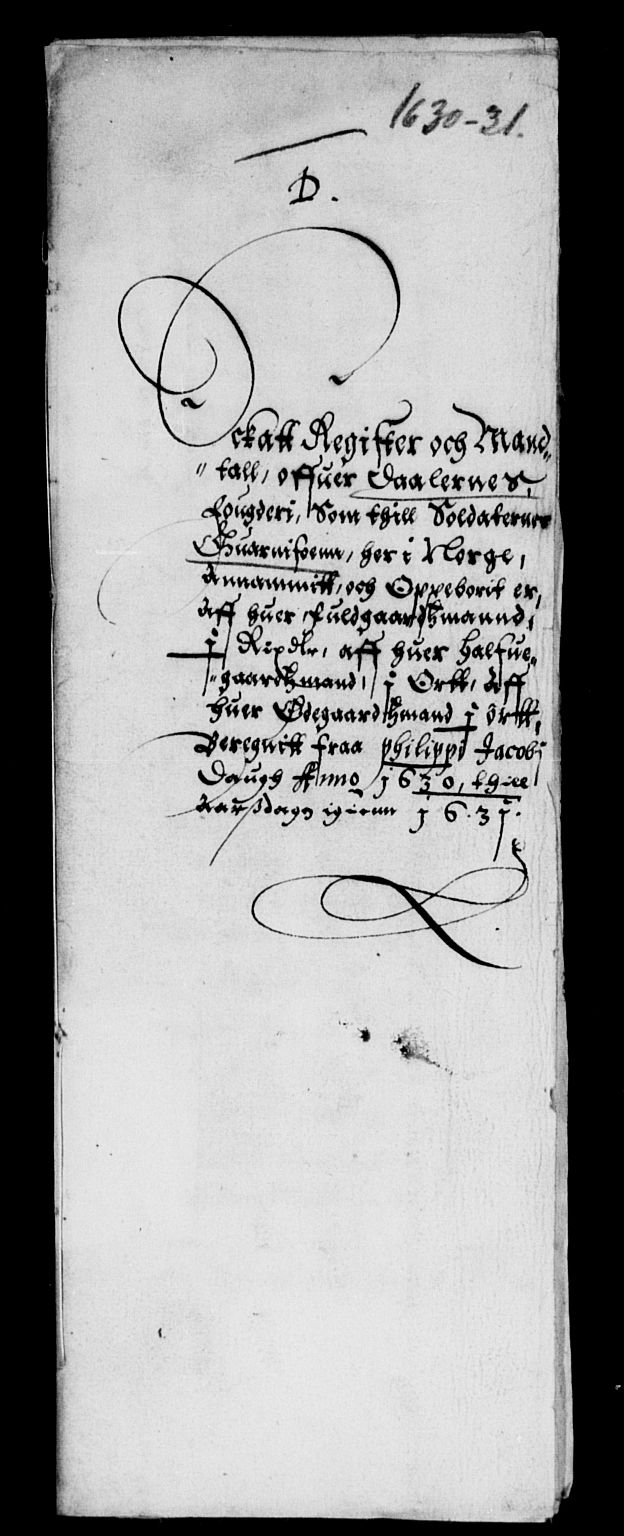 1630-31.
D.
Sckatt Register och Mand-
"tall, offuer Daalernes,
fougderi, Som thill Soldaternes
Guarnisoenn, her i Norge,
Annammitt, och Oppeborit er,
Aff huer fuldgaardtzmannd,
j Rixdlr, aff huer halfue-
"gaardtzmand, j Ortt, Aff
huer Ødegaardtzmand j Ortt,
Beregnitt fraa philippi Jacobj
Daugh Anno j630, thill
Aarsdagn igienn j6.3j.